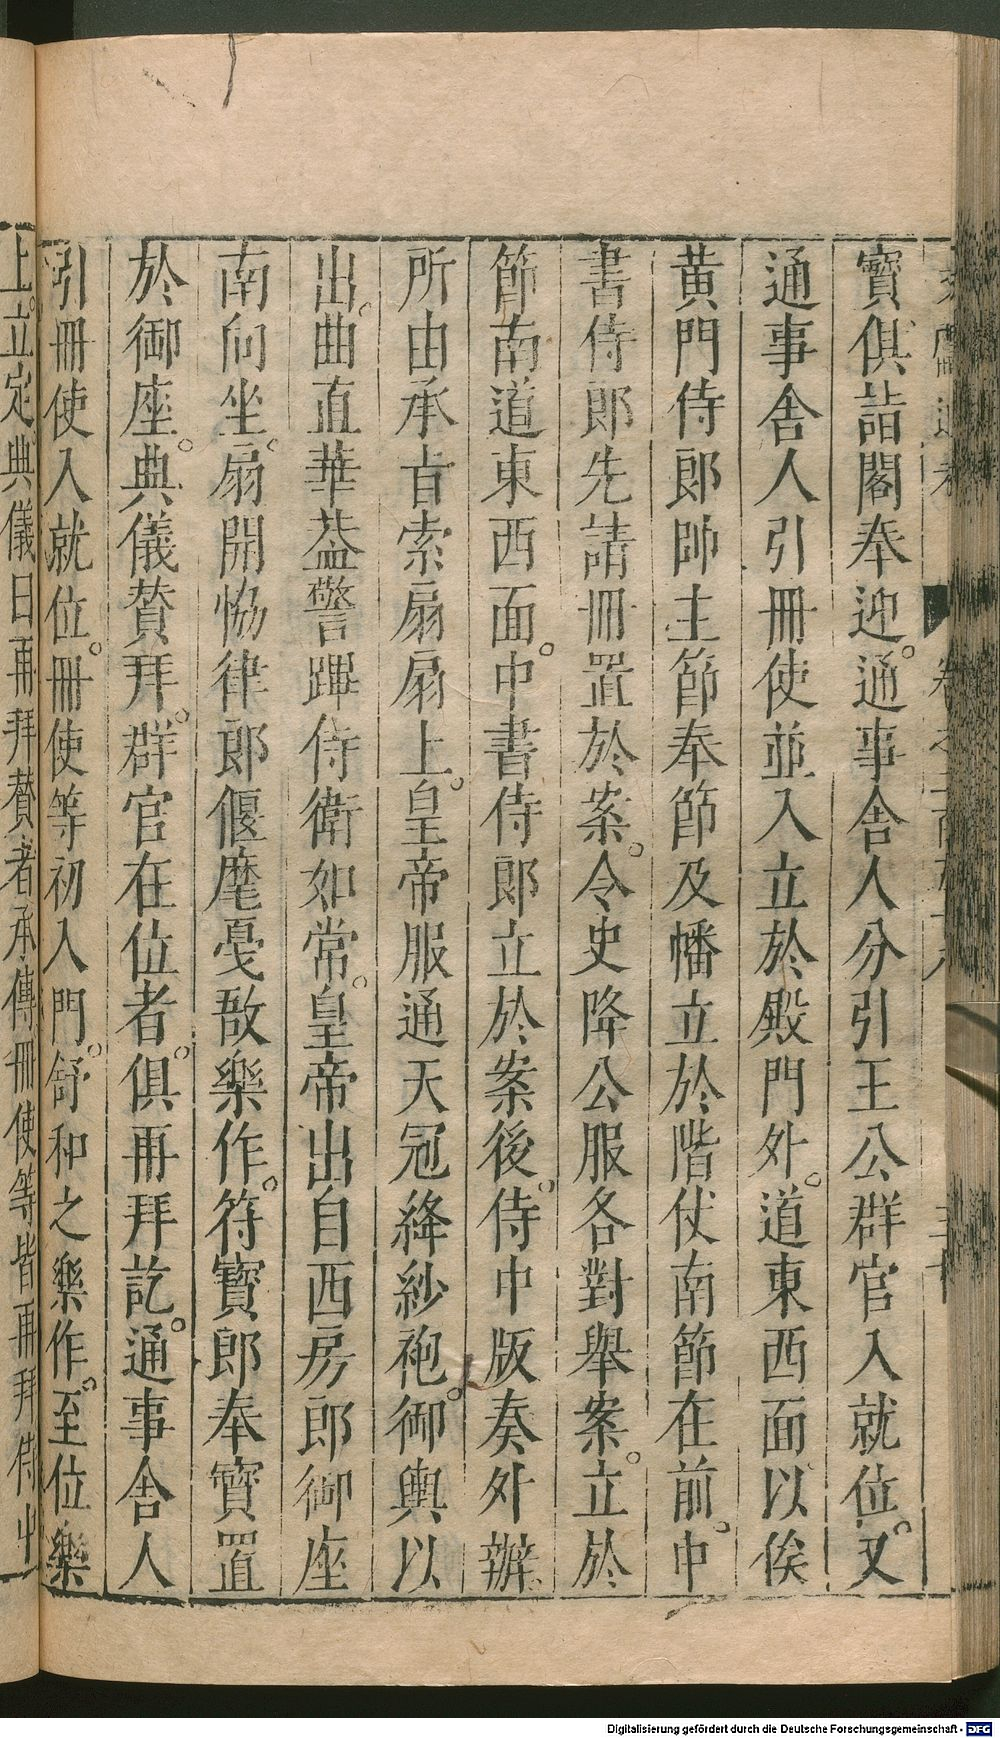 寶俱詣閣奉迎。通事舍人分引王公群官入就位。又
通事舍人引冊使並入立於殿門外。道東西面以俟
黄門侍郎帥主節奉節及幡立於階仗南節在前。中
書侍郎先請冊置於案。令史降公服各對舉案。立於
節南道東西面。中書侍郎立於案後。侍中版奏外辦
所由承㫖索扇扇上。皇帝服通天冠絳紗袍。御輿以
出。曲直華葢警蹕侍衛如常。皇帝出自西房郎御座
南向坐。扇開恊律郎偃麾戞敔樂作。符寶郎奉寶置
於御座。典儀賛拜。群官在位者。俱再拜訖。通事舍人
引冊使入就位。冊使等初入門。舒和之樂作。至位樂
上。立定典儀曰再拜賛者承傳冊使等皆再拜侍中
Digitalisierung gefördert durch die Deutsche Forschungsgemeinschaft - DFG